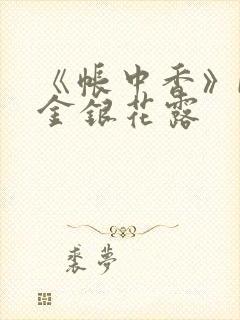 《帐中香》
金银花露
裘梦